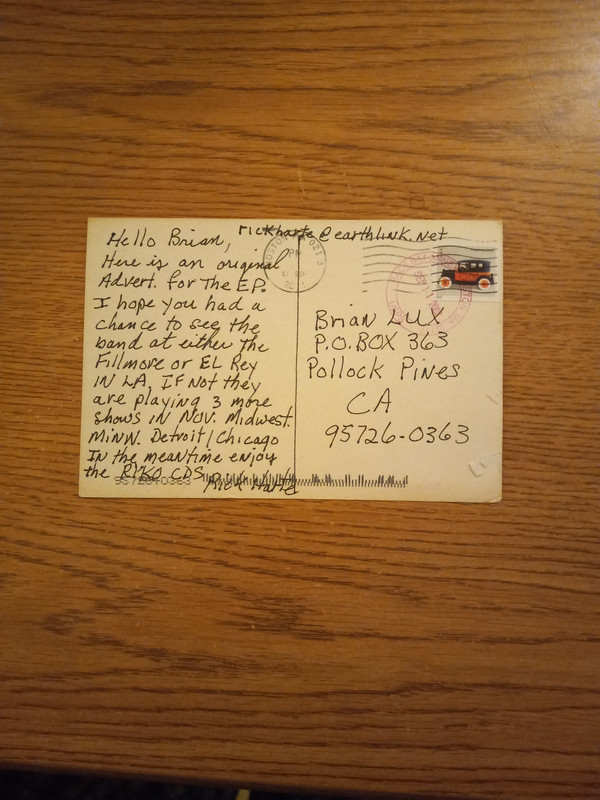 rickharte@earthlink.net
Hello Brian,
Here is an original
Advert. for the EP.
I hope you had a
chance to see the
band at either the
Fillmore or EL Rey
IN LA, IF Not they
are playing 3 more
shows IN NOV. Midwest.
MINN. Detroit/Chicago
In the meantime enjoy
the RYKO CDS
Rick Harte
BOSTON
021
PM
Brian LUX
P.O. BOX 363
Pollock Pines
CA
95726-0363
957260363